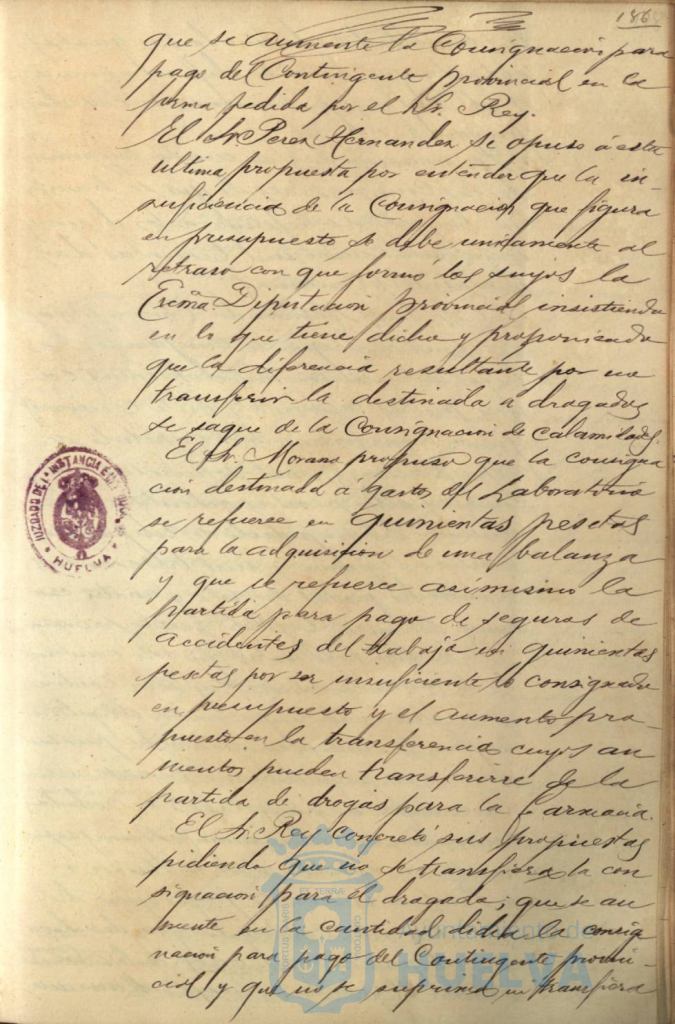 186
que se aumente la Consignacion para
pago del Contingente provincial en la
forma pedida por el Sr. Rey.
El Sr. Perez Hernandez se opuso á esta
ultima propuesta por entender que la in-
suficiencia de la Consignacion que figura
en presupuesto se debe unicamente al
retraso con que formó los suyos la
Excma. Diputacion provincial insistiendo
en lo que tiene dicho y proponiendo
que la diferencia resultante por no
transferir la destinada a dragados
se saque de la Consignacion de Calamidades.
El Sr. Morano propuso que la consigna
cion destinada á gastos del Laboratorio
se refuerce en quinientas pesetas
para la adquisicion de una balanza
y que se refuerce asimismo la
partida para pago de seguros de
accidentes del trabajo en quinientas
pesetas por ser insuficiente lo consignado
en presupuesto y el aumento pro-
puesto en la transferencia cuyos au
mentos pueden transferirse de la
partida de drogas para la Farmacia.
El Sr. Rey concretó sus propuestas
pidiendo que no se transfiera la con
signacion para el dragado; que se au
mente en la cantidad dicha la consig
nacion para pago del Contingente provin-
cial y que no se suprima ni transfiera
JUZGADO DE 1ª INSTANCIA E
HUELVA
Ayuntamiento de
HUELVA